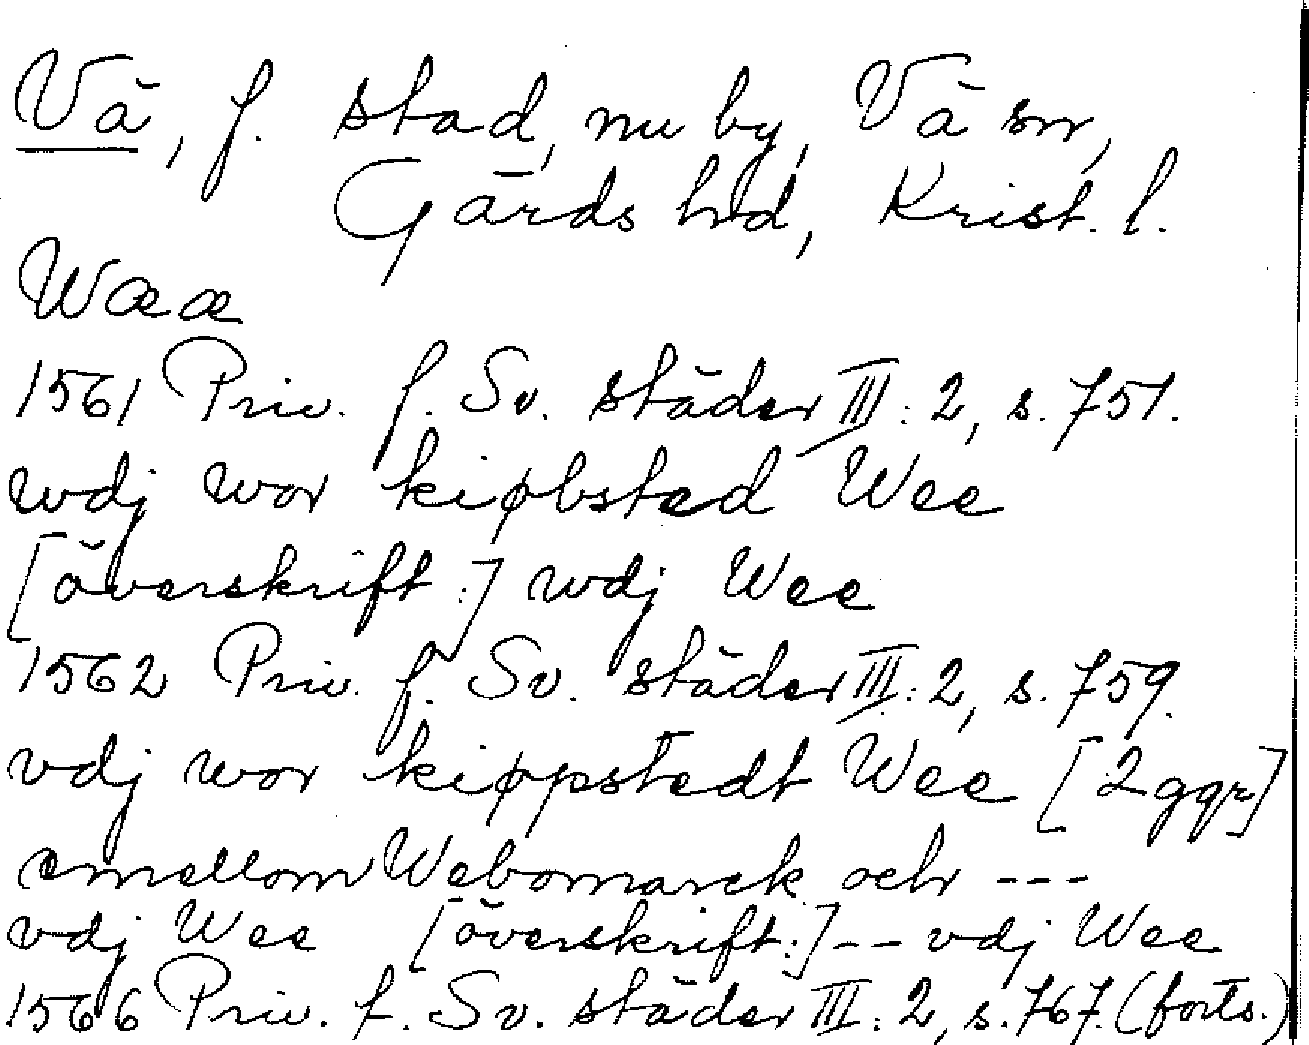 Vä, f. stad, nu by, Vä sn,
Gärds hd, Krist. l.
Wææ
1561 Priv. f. Sv. städer III: 2, s. 751.
wdj wor kiøbsted Wee
[överskrift:] wdj Wee
1562 Priv. f. Sv. städer III: 2, s. 759.
vdj wor kiøpstedt Wee [2 ggr]
emellom Webomarck och ---
vdj Wee [överskrift:] -- vdj Wee
1566 Priv. f. Sv. städer III: 2, s. 767. (forts.)